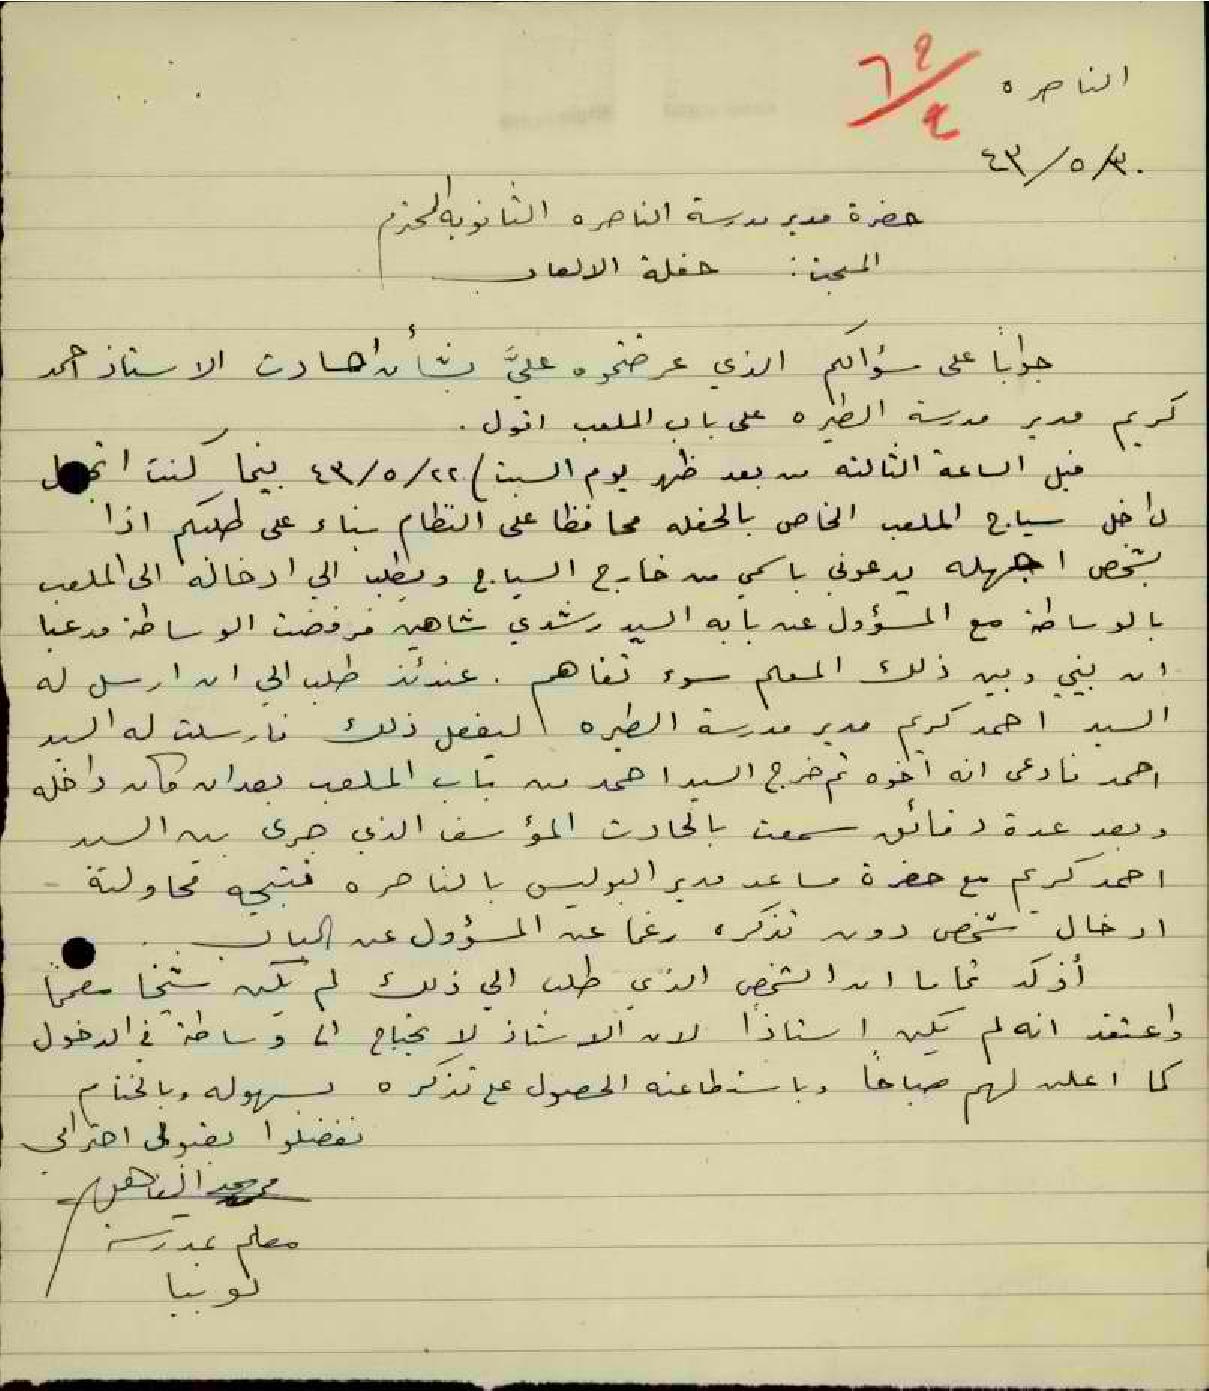 الناصره
٤٣/٥/٣٠
حضرة مدير مدرسة الناصره الثانويه المحترم
المبحث: حفلة الالعاب
جواباً على سؤالكم الذي عرضتموه عليَّ بشأن احداث الاستاذ احمد
كريم مدير مدرسة الطيره على باب الملعب اقول.
قبل الساعة الثالثه من بعد ظهر يوم السبت ٤٣/٥/٢٢ بينما كنت اتجول
داخل سياج الملعب الخاص بالحفله محافظا على النظام بناء على طلبكم اذا
بشخص اجهله يدعوني باسمي من خارج السياج ويطلب الي ادخاله الى الملعب
بالوساطة مع المسؤول عن بابه السيد رشدي شاهين فرفضت الوساطة مدعيا
ان بيني وبين ذلك المعلم سوء تفاهم. عندئذ طلب الي ان ارسل له
السيد احمد كريم مدير مدرسة الطيره ليفعل ذلك فارسلت له السيد
احمد فادعى انه اخوه ثم خرج السيد احمد من باب الملعب بعد ان كان داخله
وبعد عدة دقائق سمعت بالحادث المؤسف الذي جرى بين السيد
احمد كريم مع حضرة مساعد مدير البوليس بالناصره نتيجه محاولته
ادخال شخص دون تذكره رغما عن المسؤول عن الباب.
أؤكد تماما ان الشخص الذي طلب الي ذلك لم يكن شيخا معمما
واعتقد انه لم يكن استاذاً لان الاستاذ لا يحتاج الى وساطة في الدخول
كما اعلن لهم صباحاً وباستطاعته الحصول على تذكره بسهوله وبالختام
تفضلوا بقبول احترامي
معلم بمدرسة
لوبيا